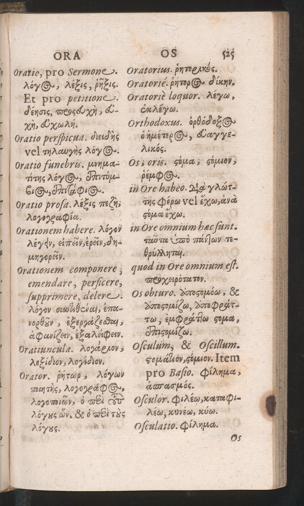 ORA
OS
525
Oratio, pro Sermone.
λόγος, λέξις, ῥῆξις.
Et pro petitione.
δέησις, προσευχή, εὐ-
χή, εὐχωλή.
Oratio perspicua. διειδής
vel τηλαυγής λόγος.
Oratio funebris. μνημα-
τίτης λόγος,
Oratio prosa. λέξις πεζή,
λογογραφία.
Orationem habere. λόγον
λέγειν, εἰπεῖν, ἐρεῖν, δη-
μηγορεῖν.
Orationem componere,
emendare, perficere,
supprimere, delere.
λόγον συνθεῖναι, ἐπα-
νορθοῦν, ἐξεργάζεσθαι,
ἀφανίζειν, ἐξαλείφειν.
Oratiuncula. λογάριον,
λεξίδιον, λογίδιον.
Orator. ῥήτωρ, λόγων
ποιητής, λογογράφος,
λογοποιῶν, ὁ περὶ τοὺς
λόγους ὤν. & ὁ περὶ τοὺς
λόγους.
Oratorius. ῥητορικός.
Oratoriè. ῥήτορος δίκην.
Oratoriè loquor. λέγω,
ἐκλέγω.
Orthodoxus. ὀρθόδοξος
ὁ ἡμέτερος, εὐαγγε-
λικός.
Os, oris. στόμα, στόμιον,
in Ore habeo. διὰ γλώτ-
της φέρω vel ἔχω, ἀνὰ
στόμα ἔχω.
in Ore omnium hæc sunt.
ταῦτα ὑπὸ πάντων τε-
θρύλληται.
quod in Ore omnium est.
Os obturo. ἐπιστομέω, &
ἐπιστομίζω,
ἐμφράττω στόμα,
Osculum, & Oscillum.
στομάτιον, στόμιον. Item
pro Basio. φίλημα,
ἀσπασμός.
Osculor. φιλέω, καταφι-
λέω, κυνέω, κύω.
Osculatio. φίλημα.
Os